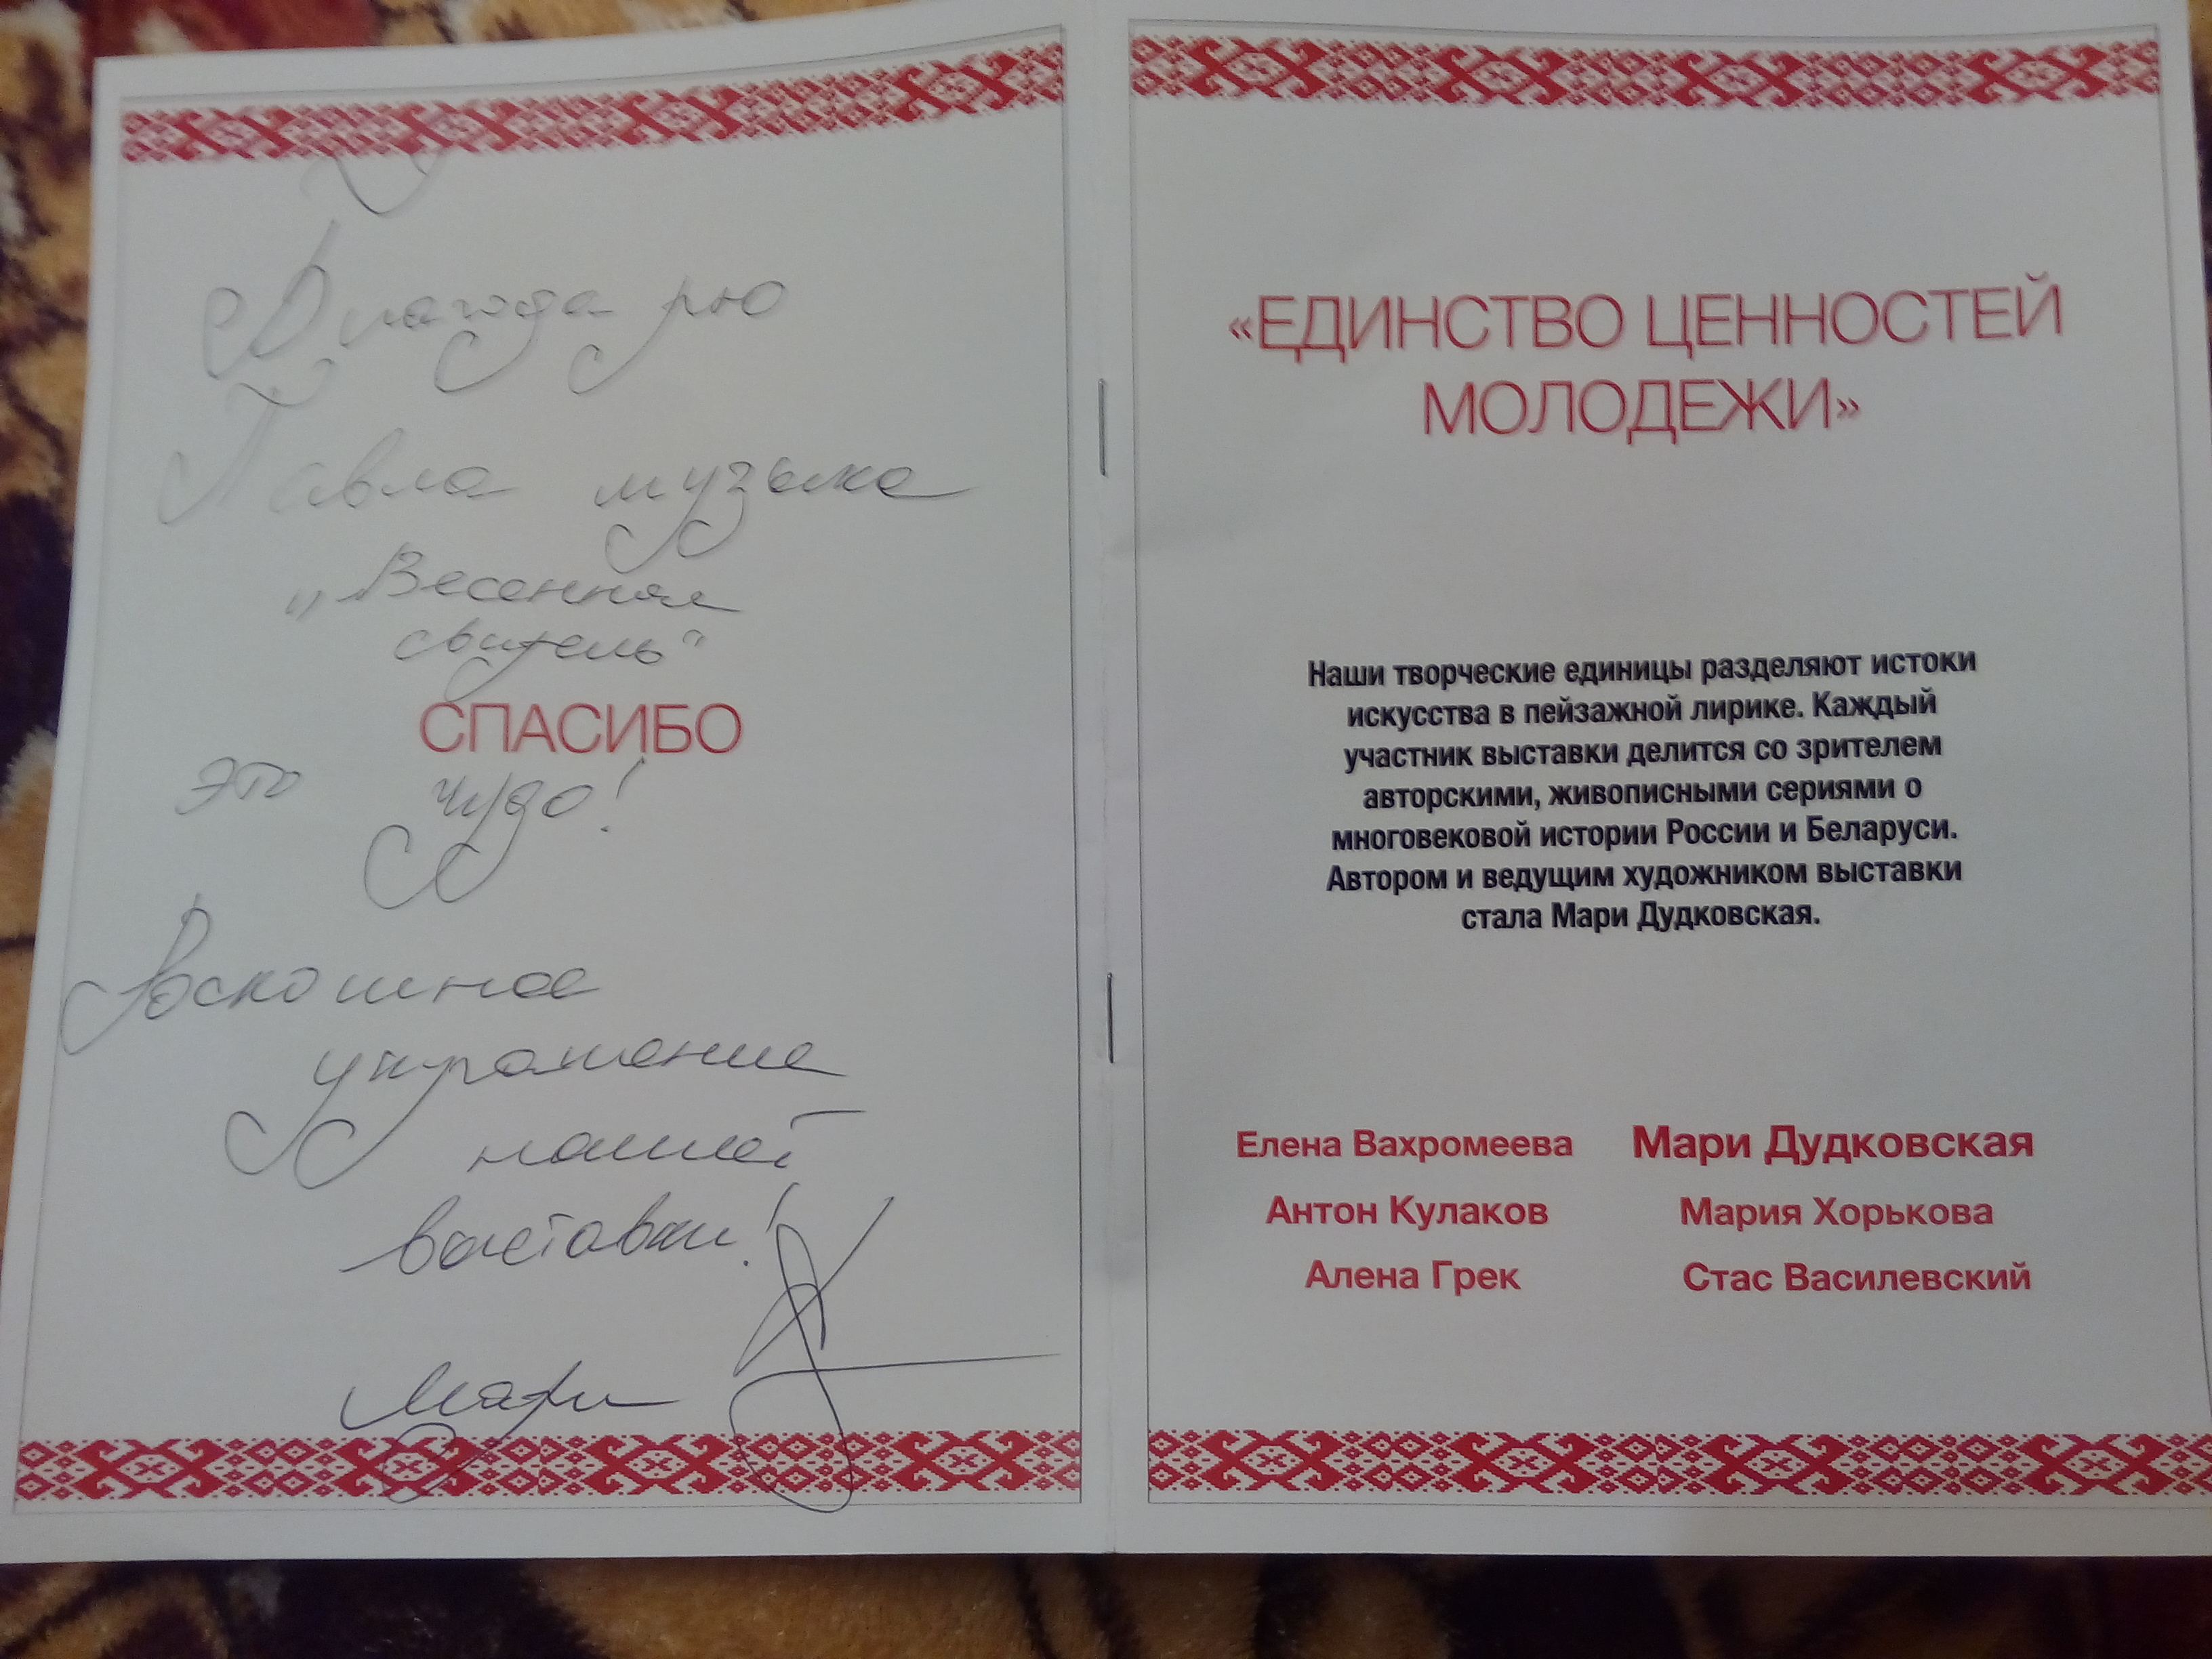 Благодарю
Павла музыка
„Весенняя
свитель“
СПАСИБО
это чудо!
Роскошное
украшение
нашей
выставки!
Мари
«ЕДИНСТВО ЦЕННОСТЕЙ
МОЛОДЕЖИ»
Наши творческие единицы разделяют истоки
искусства в пейзажной лирике. Каждый
участник выставки делится со зрителем
авторскими, живописными сериями о
многовековой истории России и Беларуси.
Автором и ведущим художником выставки
стала Мари Дудковская.
Елена Вахромеева Мари Дудковская
Антон Кулаков Мария Хорькова
Алена Грек Стас Василевский